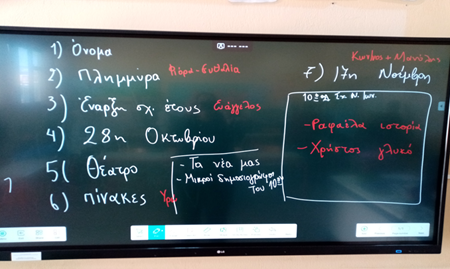 1) Όνομα
2) Πλημμύρα Ευθαλία
3) Έναρξη σχ. έτους Ευάγγελος
4) 28η Οκτωβρίου
5) Θέατρο
6) πίνακες
- Τα νέα μας
- Μικροί δημοσιογράφοι του 10ου
7) 17η Νοέμβρη
10ο
- Ραφαέλα ιστορία
- Χρήστος γλυκό
LG